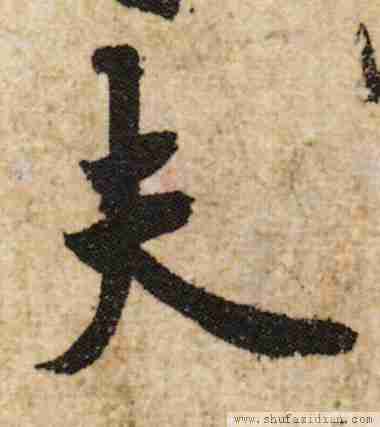 夫
www.shufazidian.com